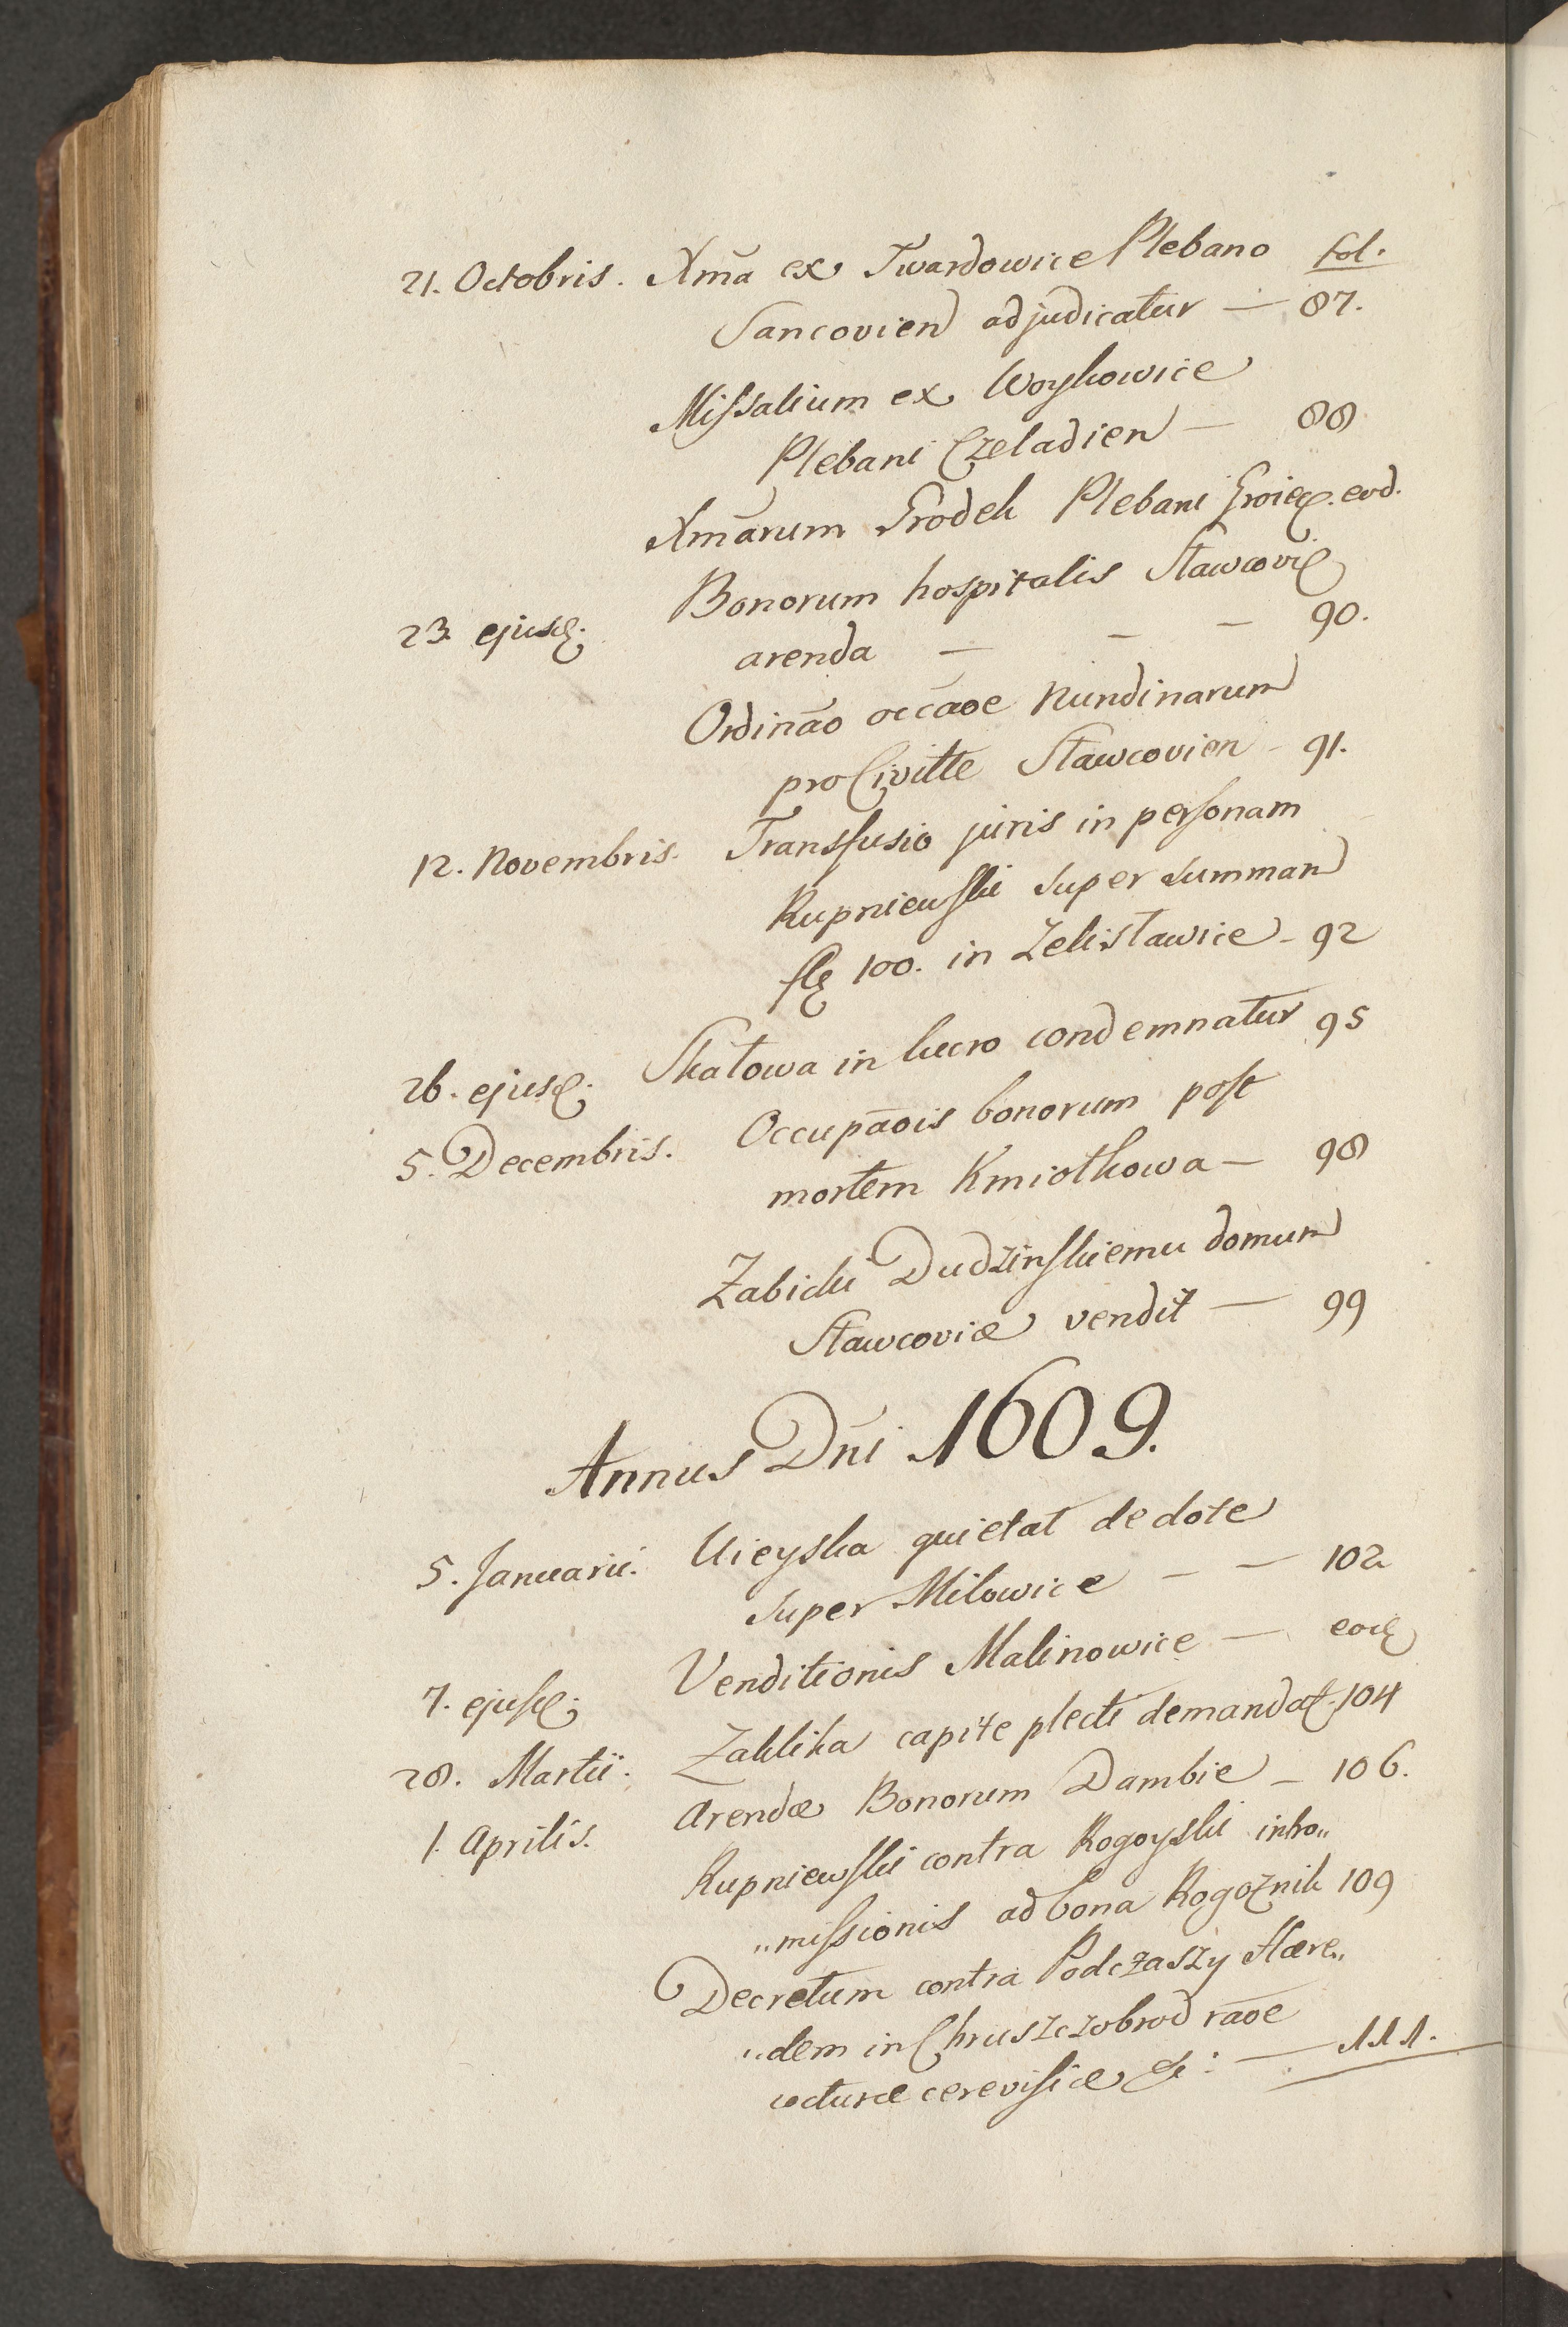 21. Octobris. Xma̅ ex Twardowice Plebano fol.
Sancovien adjudicatur — 87.
Missalium ex Woykowice
Plebani Czeladien — 88
Xma̅rum Grodek Plebani Groiec. eod.
23 ejusd. Bonorum hospitalis Sławcovię
arenda — — — 90.
Ordina̅o occa̅oe Nundinarum
pro Civitte Sławcovien - 91.
12. Novembris. Transfusio juris in personam
Rupniewski super summam
fl 100. in Zelisławice - 92
26. ejusd. Skałowa in lucro condemnatur 95
5. Decembris. Occupa̅ois bonorum post
mortem Kmiotkowa — 98
Zabicki Dudzinskiemu domum
Sławcoviæ vendit — 99
Annus Dn̅i 1609.
5. Januarii. Uieyska quietat de dote
super Milowice - — 102
7. ejusd. Venditionis Malinowice — eod
28. Martii. Zaklika capite plecti demandat. 104
1. Aprilis. Arendæ Bonorum Dambie - 106.
Rupniewski contra Rogoyski intro„
„missionis ad bona Rogoznik 109
Decretum contra Podczaszy Hære„
„dem in Chruszczobrod ra̅oe
cocturæ cerevisiæ &: — 111.